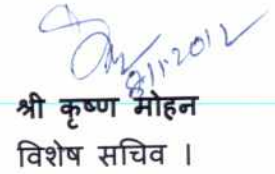 8/11/2012
श्री कृष्ण मोहन
विशेष सचिव ।